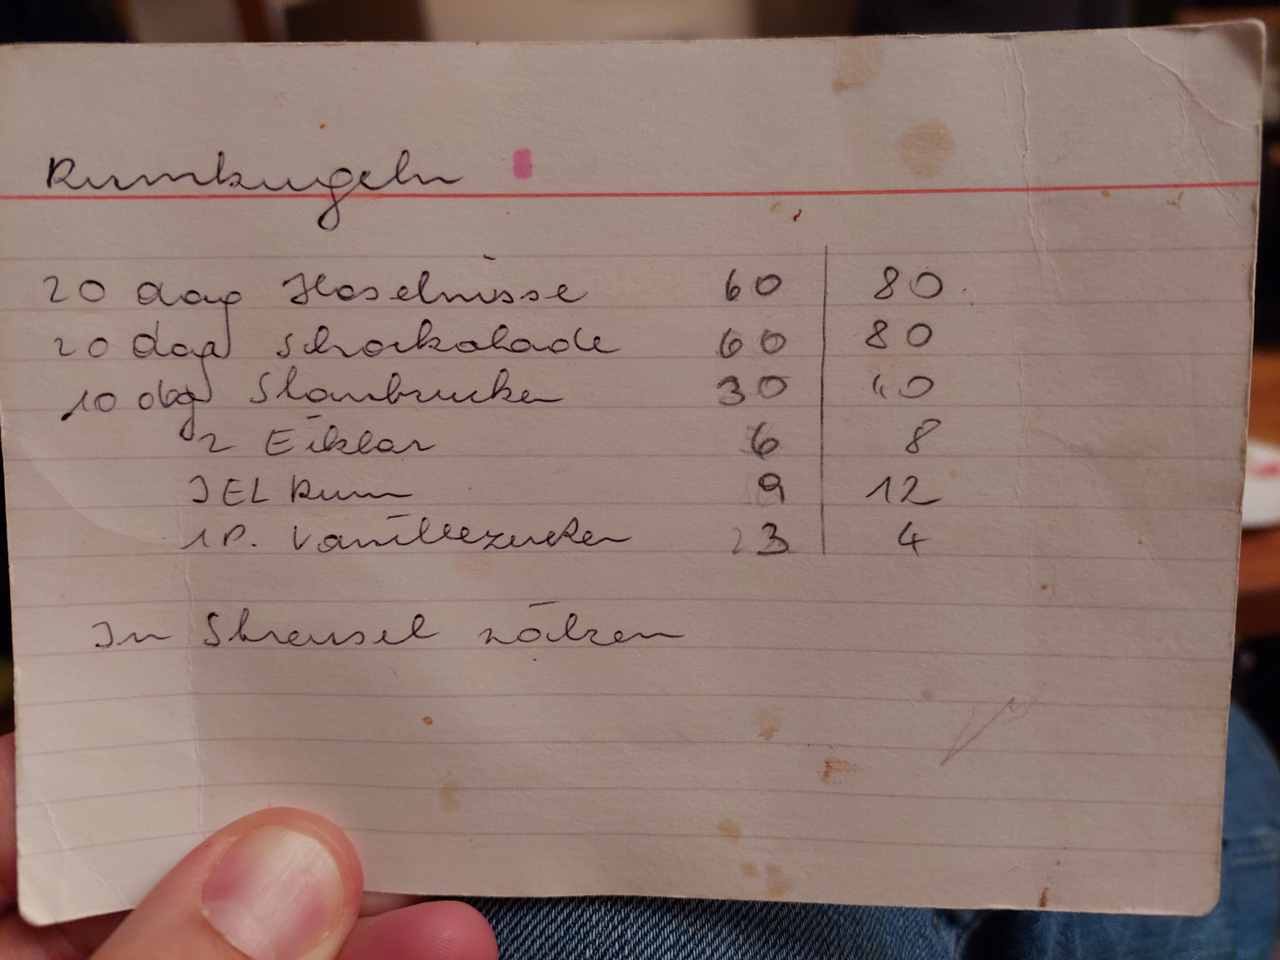 Rumkugeln
20 dag Haselnüsse 60 80
20 dag Schokolade 60 80
10 dag Staubzucker 30 40
2 Eiklar 6 8
3 EL Rum 9 12
1 P. Vanillezucker 3 4
In Streusel wälzen